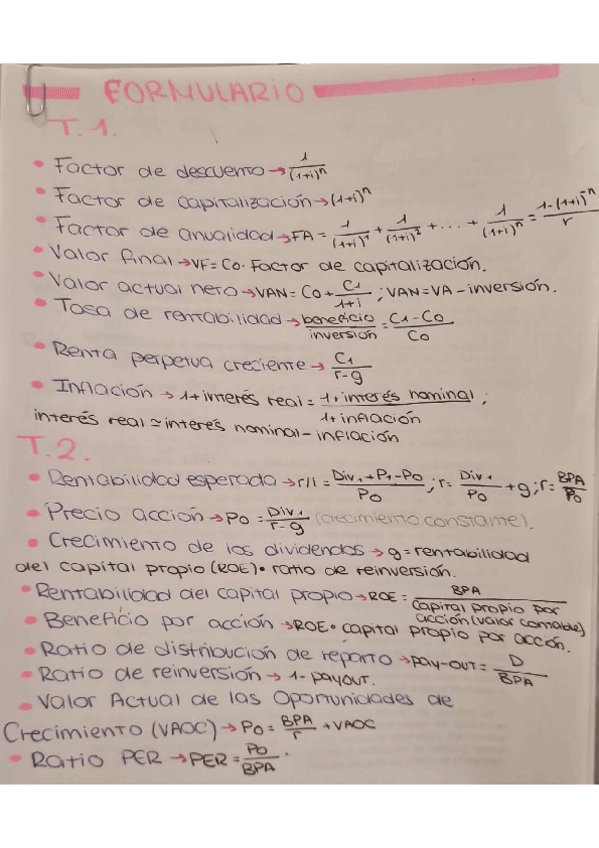 FORMULARIO
T.1.
• Factor de descuento → 1/(1+i)^n
• Factor de capitalización → (1+i)^n
• Factor de anualidad → FA = 1/(1+i)^1 + 1/(1+i)^2 + ... + 1/(1+i)^n = 1-(1+i)^-n/r
• Valor final → VF = Co · Factor de capitalización.
• Valor actual neto → VAN = Co + C1/1+i ; VAN = VA - inversión.
• Tasa de rentabilidad → beneficio/inversión = C1-Co/Co
• Renta perpetua creciente → C1/r-g
• Inflación → 1+interés real = 1+interés nominal/1+inflación ;
interés real ≃ interés nominal - inflación
T.2.
• Rentabilidad esperada → r// = Div1+P1-Po/Po ; r = Div1/Po + g ; r = BPA/Po
• Precio acción → Po = Div1/r-g (crecimiento constante).
• Crecimiento de los dividendos → g = rentabilidad
del capital propio (ROE) • ratio de reinversión.
• Rentabilidad del capital propio → ROE = BPA/capital propio por acción (valor contable)
• Beneficio por acción → ROE • capital propio por acción.
• Ratio de distribución de reparto → pay-out = D/BPA
• Ratio de reinversión → 1- payout.
• Valor Actual de las Oportunidades de
Crecimiento (VAOC) → Po = BPA/r + VAOC
• Ratio PER → PER = Po/BPA.